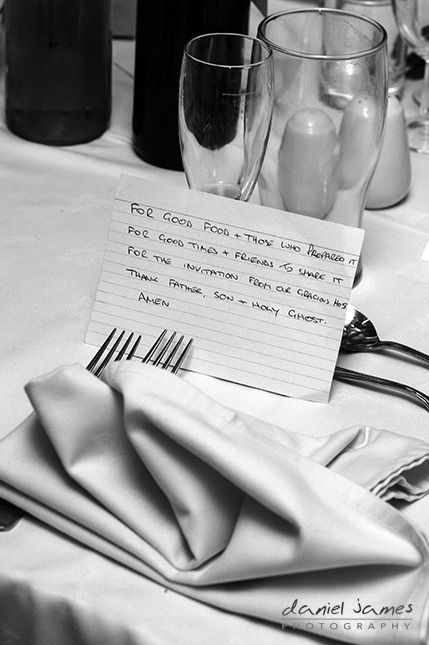 FOR GOOD FOOD + THOSE WHO PREPARED IT
FOR GOOD TIMES + FRIENDS TO SHARE IT
FOR THE INVITATION FROM OUR GRACIOUS HOST
THANK FATHER, SON + HOLY GHOST.
AMEN
daniel james
PHOTOGRAPHY